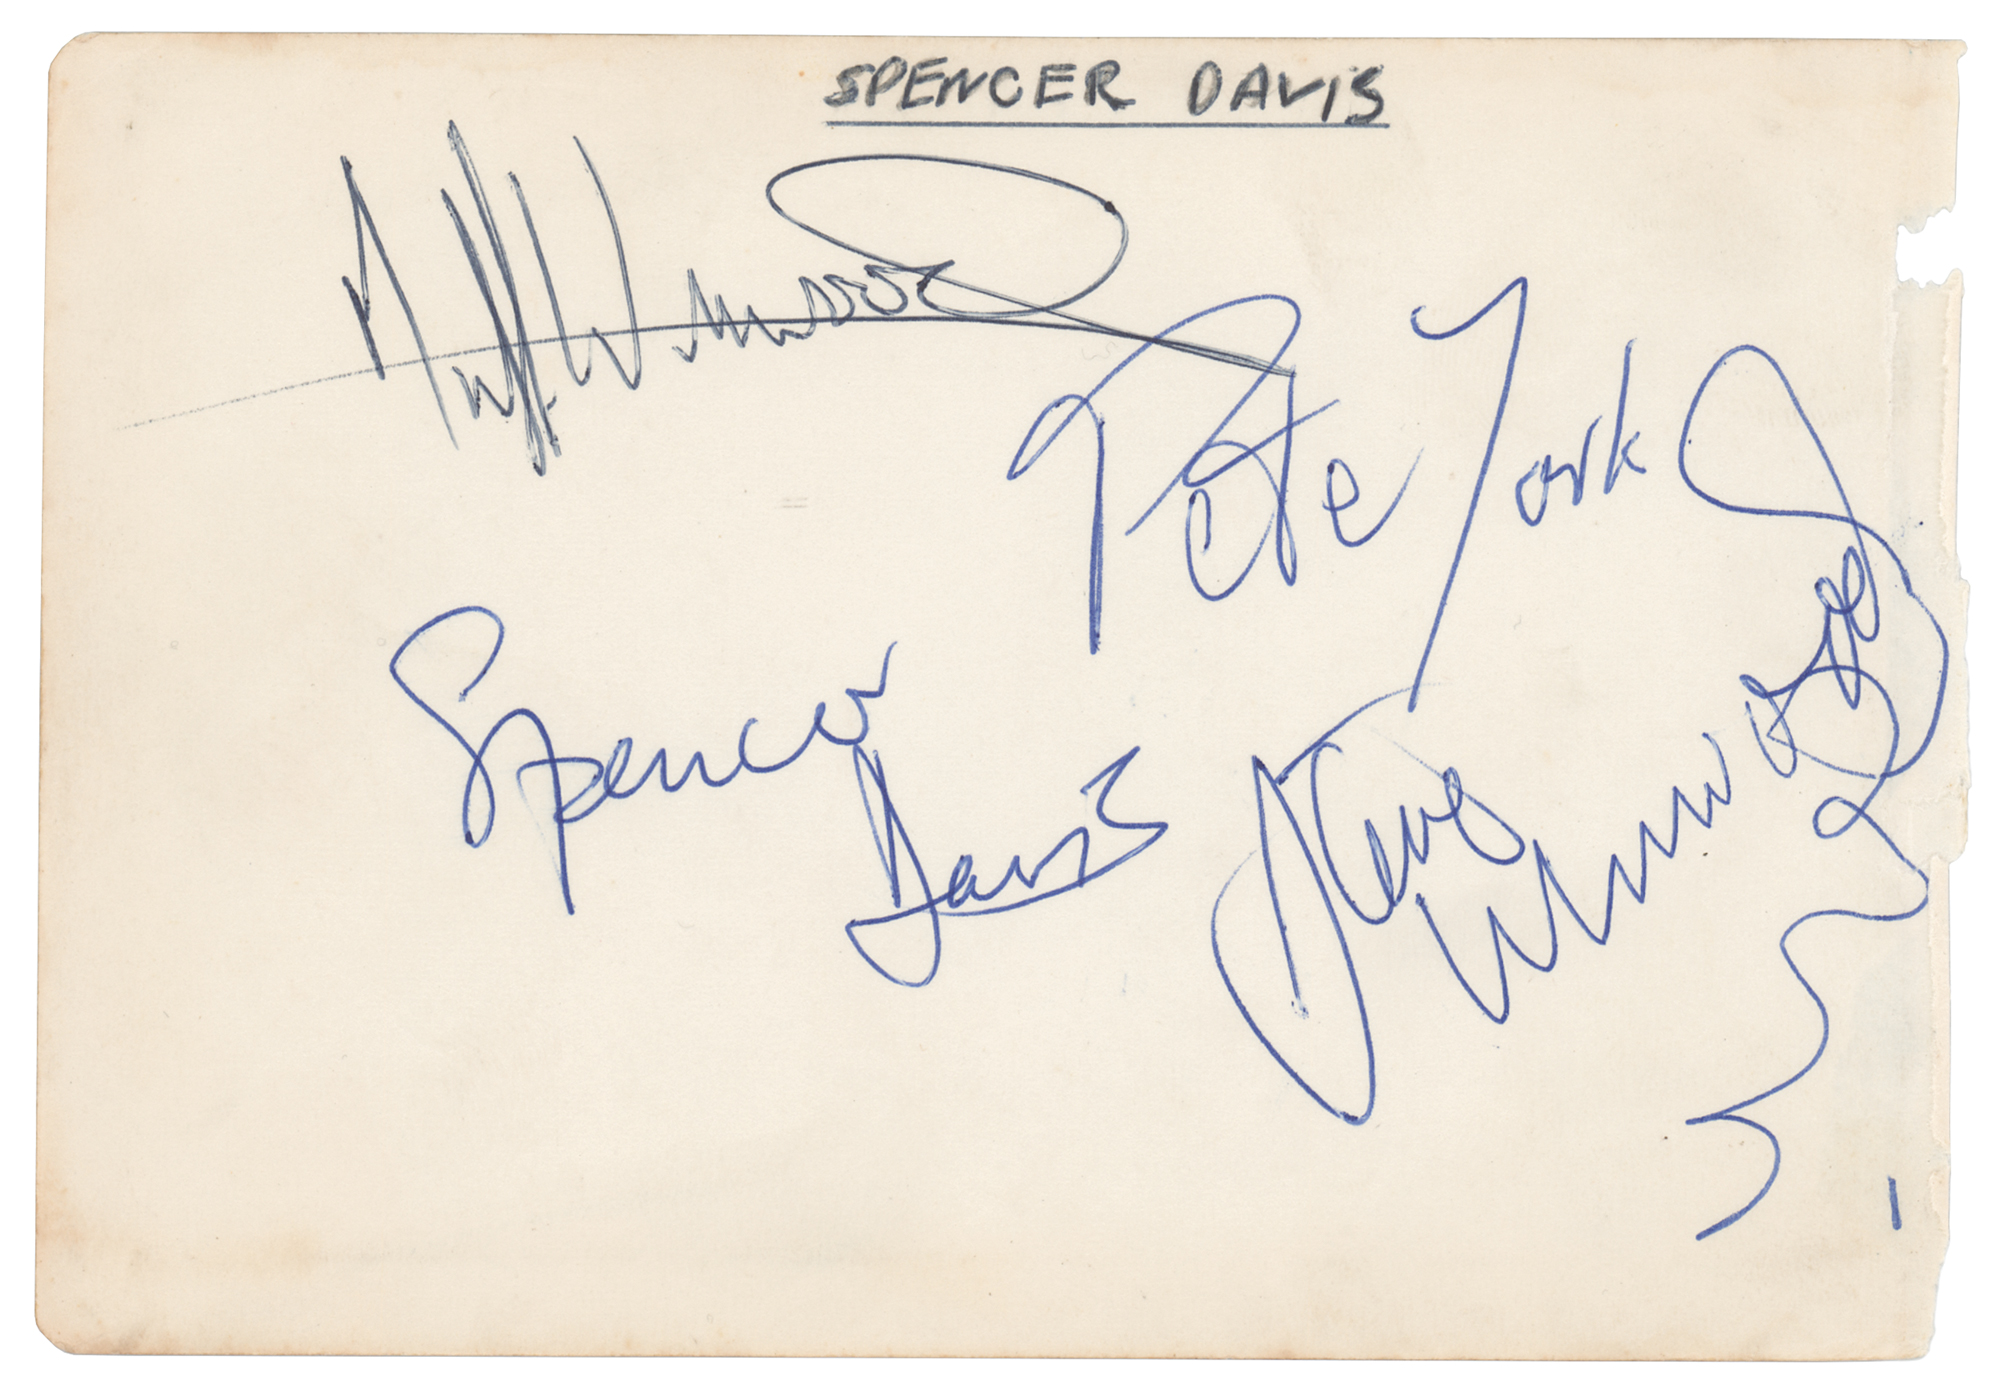 SPENCER DAVIS
Muff Winwood
Pete York
Spencer
Davis
Steve Winwood